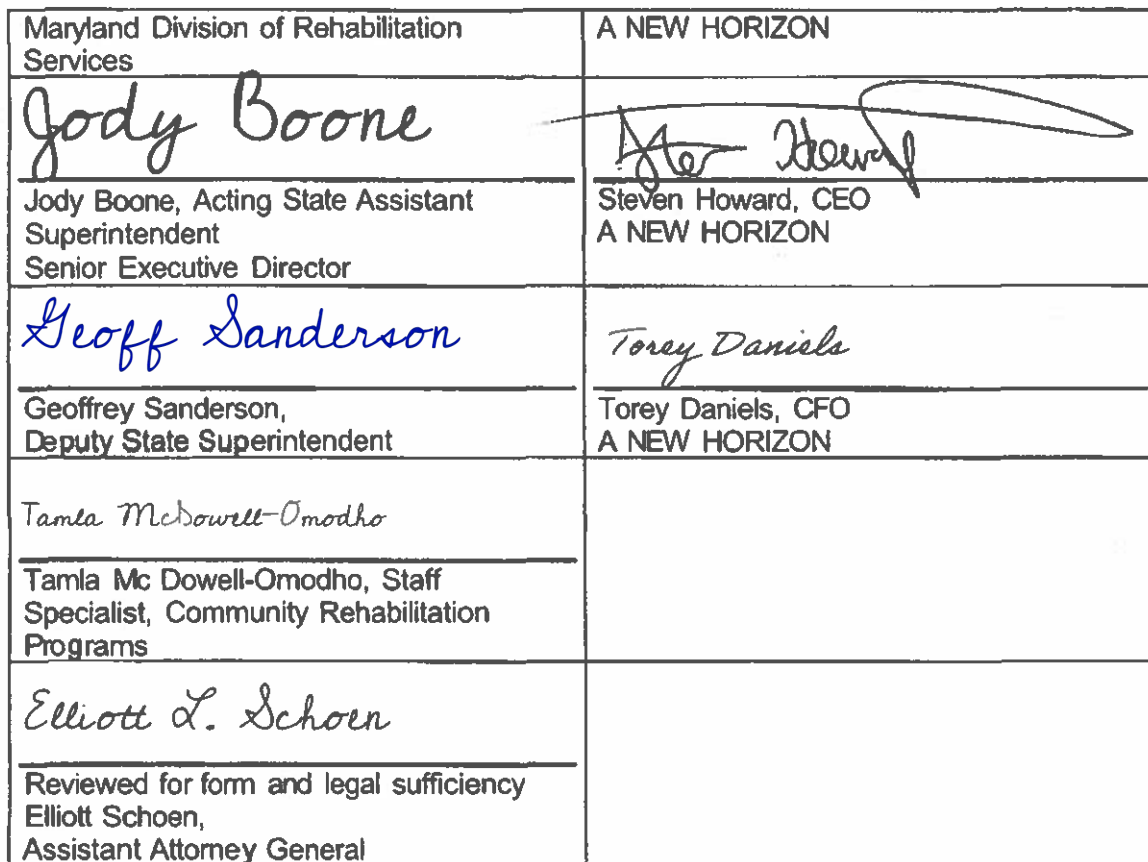 Maryland Division of Rehabilitation
Services
A NEW HORIZON
Jody Boone
Steven Howard
Jody Boone, Acting State Assistant
Superintendent
Senior Executive Director
Steven Howard, CEO
A NEW HORIZON
Geoff Sanderson
Torey Daniels
Geoffrey Sanderson,
Deputy State Superintendent
Torey Daniels, CFO
A NEW HORIZON
Tamla McDowell-Omodho
Tamla Mc Dowell-Omodho, Staff
Specialist, Community Rehabilitation
Programs
Elliott L. Schoen
Reviewed for form and legal sufficiency
Elliott Schoen,
Assistant Attorney General